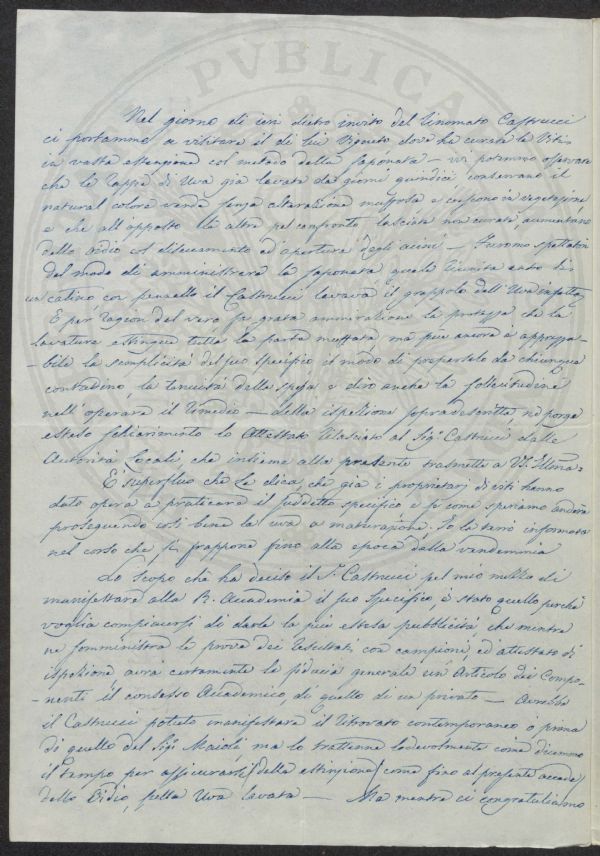 PVBLICA
Nel giorno di ieri dietro invito del rinomato Castrucci
ci portammo a visitare il di lui Vigneto dove ha curata la Viti
in vasta estenzione col metodo della saponata – ivi potemmo osservare
che le rappe di Uva già lavate da giorni quindici, conservano il
natural colore verde senza alterazione e crescono in vegetazione
e che all'opposto le altre pel confronto lasciate non curate, aumentano
dello oidio col disseccamento ed apertura degli acini – Fummo spettatori
del modo di amministrare la saponata quale riunita entro di
un catino, con pennello il Castrucci lavava il grappolo dell'Uva infetto,
E per ragion del vero fu grata ammirazione la prestezza che la
lavatura estingue tutta la parte muffata ma più ancora è apprezza-
-bile la semplicità del suo specifico il modo di prepararlo da chiunque
contadino, la tenuità della spesa e dirò anche la sollecitudine
nell'operare il rimedio – della ispezione sopradescritta, ne porge
esteso schiarimento lo Attestato rilasciato al Sig.r Castrucci dalle
Autorità Locali, che insieme alla presente trasmetto a VS. Illma.
È superfluo che Le dica, che già i proprietarj di viti hanno
dato opera a praticare il suddetto specifico e se come speriamo andrà
proseguendo così bene la uva a maturazione, Io la terrò informata
nel corso che si frappone fino alla epoca della vendemmia
Lo scopo che ha deciso il S.r Castrucci pel mio mezzo di
manifestare alla R. Accademia il suo Specifico, è stato quello perchè
voglia compiacersi di darle la più estesa pubblicità, che mentre
ne somministra le prove dei resultati con campioni, ed attestato di
ispezione, avrà certamente la fiducia generale un Articolo dei Compo-
-nenti il consesso Accademico, di quello di un privato – Avrebbe
il Castrucci potuto manifestare il ritrovato contemporaneo o prima
di quello del Sig.r ma lo trattenne lodevolmente come dicemmo
il tempo per assicurarsi (della estinzione) come fino al presente accade
dello Oidio, nella Uva lavata – Ma mentre ci congratuliamo